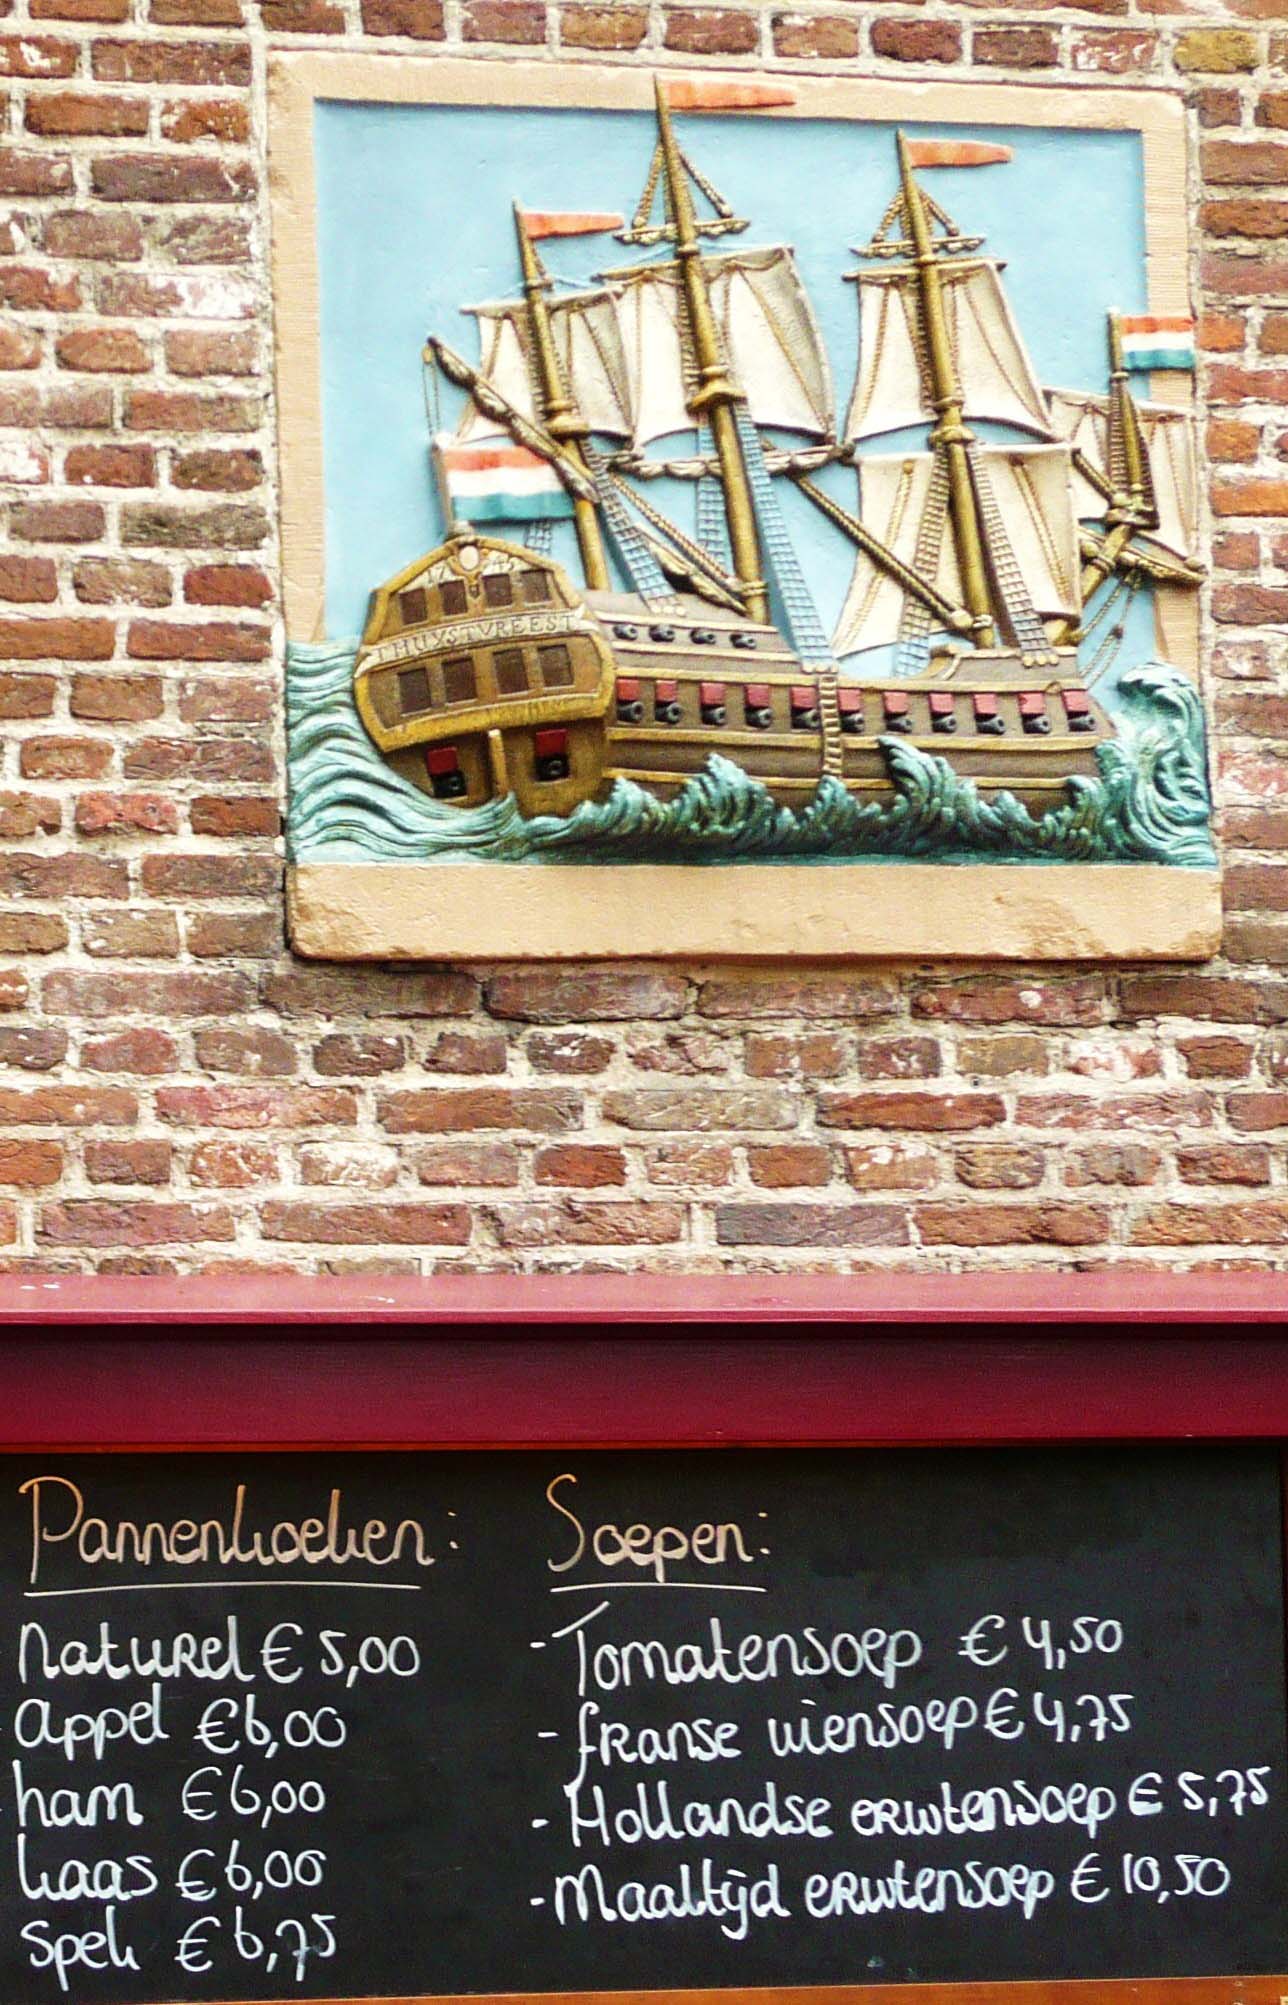 THUYSTVREEST
Pannenkoeken:
Naturel € 5,00
appel € 6,00
ham € 6,00
kaas € 6,00
Spek € 6,75
Soepen:
- Tomatensoep € 4,50
- franse uiensoep € 4,75
- Hollandse erwtensoep € 5,75
- Maaltijd erwtensoep € 10,50